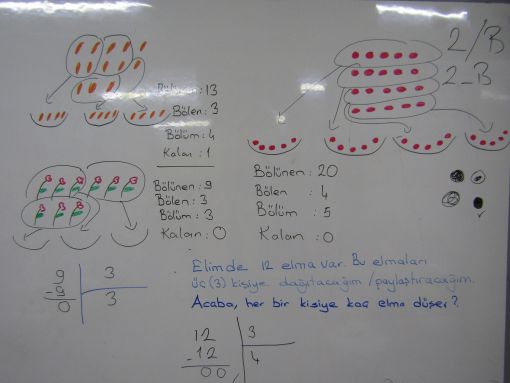 2/B
2-B
Bölünen : 13
Bölen : 3
Bölüm : 4
Kalan : 1
Bölünen : 9
Bölen : 3
Bölüm : 3
Kalan : 0
Bölünen : 20
Bölen : 4
Bölüm : 5
Kalan : 0
9 3
-9 3
0
Elimde 12 elma var. Bu elmaları
üç (3) kişiye dağıtacağım / paylaştıracağım.
Acaba, her bir kişiye kaç elma düşer?
12 3
-12 4
00